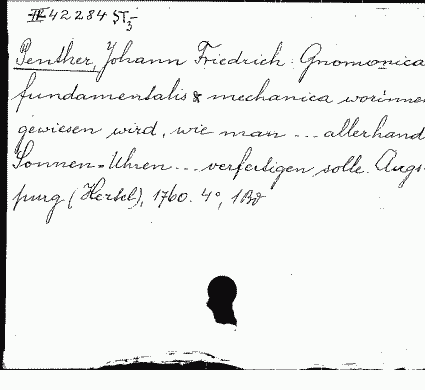 III 42284 ST3-
Penther, Johann Friedrich: Gnomonica
fundamentalis & mechanica worinnen
gewiesen wird, wie man ... allerhand
Sonnen-Uhren ... verfertigen solle. Augs-
purg (Hertel), 1760. 4°, 1 Bd